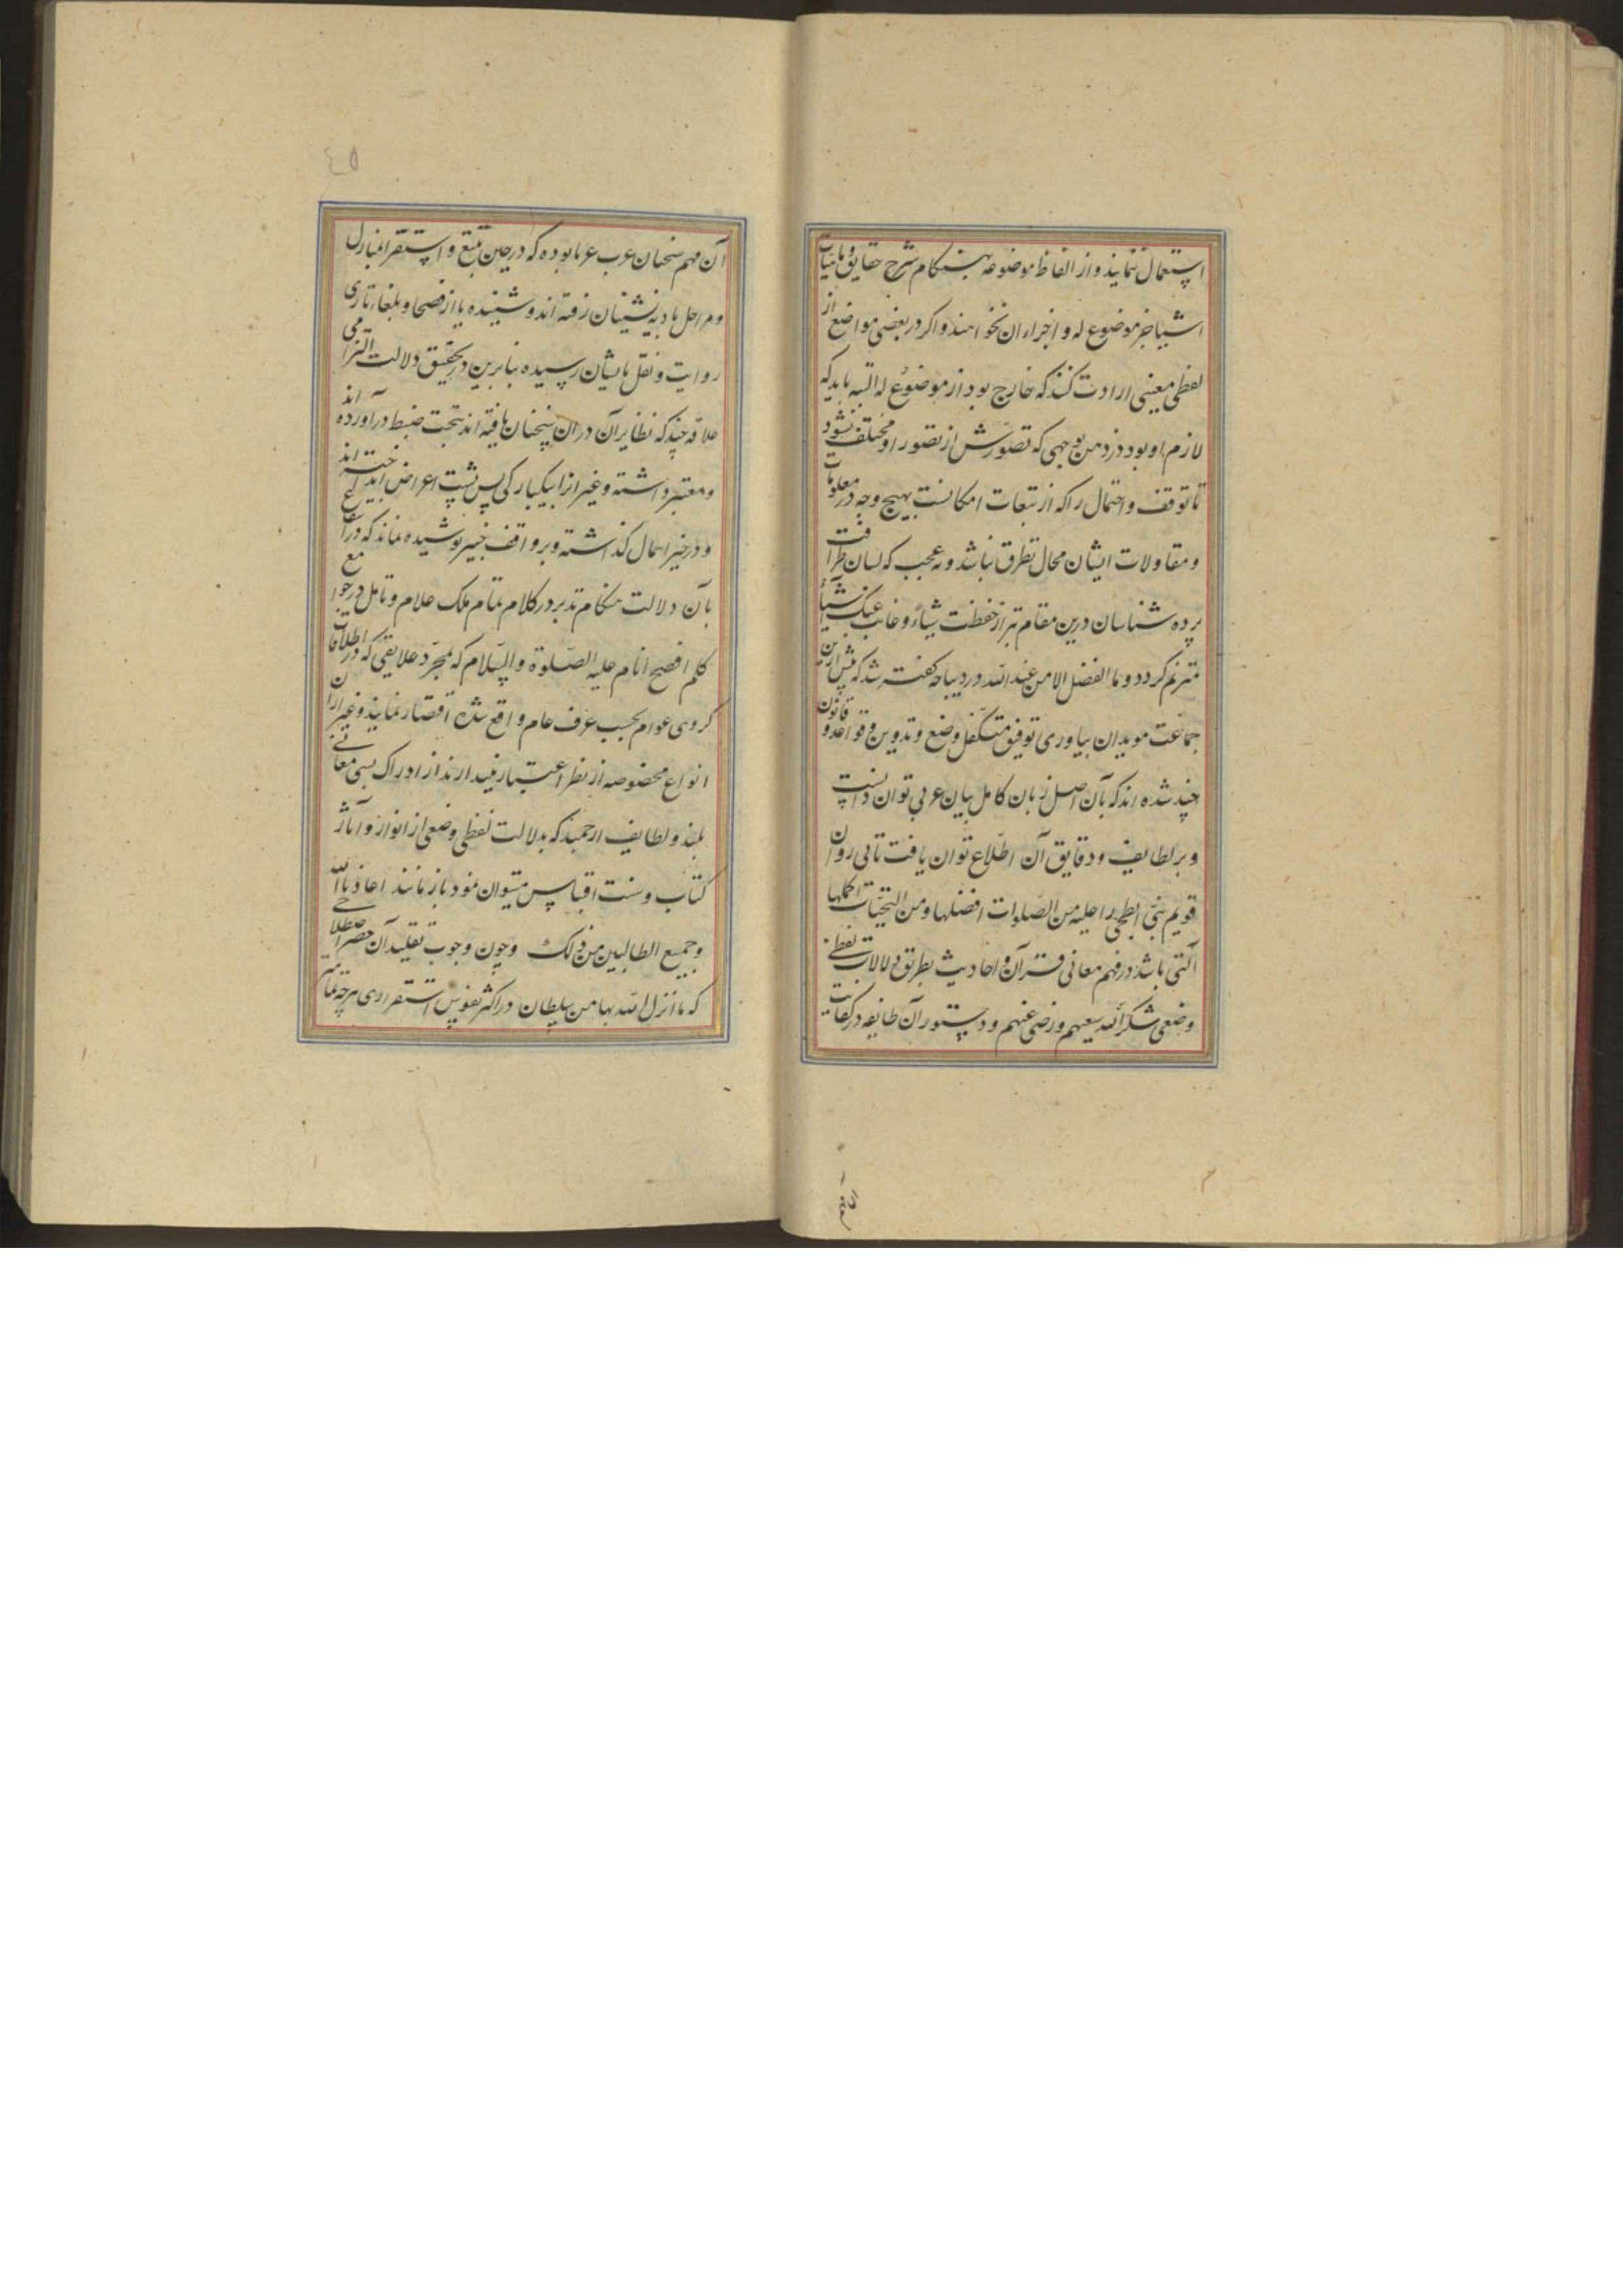 استعمال ننمایند و از الفاظ موضوعه بهنکام شرح حقایق و ماهیات
اشیا جز موضوع له و اجزاء ان نخواهند و اکر در بعضی مواضع از
لفظی معینی ارادت کنند که خارج بود از موضوع له البته باید که
لازم او بود در ذهن بوجهی که تصورش از تصور او مختلف نشود
تا توقف و احتمال را که از تبعات امکانست بهیچ وجه در معلومات
و مقاولات ایشان مجال تطرق نباشد و نه عجب که لسان ظرافت
پرده شناسان درین مقام حفظت شیاء و غابت عنک اشیاء
مترنم کردد و ما الفضل الا من عند الله در دیباجه کفته شد که پیش ازین
جماعت مویدان بیاوری توفیق متکفل وضع و تدوین قواعد و قانون
چند شده اند که بآن اصل زبان کامل بیان عربی توان دانست
و بر لطایف و دقایق آن اطلاع توان یافت تا پی روان
قویم نبی ابطحی را علیه من الصلوات افضلها و من التحیات اکملها
آلتی باشد در فهم معانی قرآن و احادیث بطریق دلالات لفظی
وضعی شکر الله سعیهم و رضی عنهم و دستور آن طایفه در کفایت
آن مهم سخنان عرب عربا بوده که در حین تتبع و استقرا بمنازل
و مراحل بادیه نشینان رفته اند و شنیده یا از فصحا و بلغاء تازی
روایت و نقل بایشان رسیده بنابرین در تحقیق دلالت التزامی
علاقه چند که نظایر آن در ان سخنان یافته اند بتحت ضبط در آورده اند
و معتبر داشته و غیر انرا بیکبارکی پس پشت اعراض انداخته اند
و در حیز اهمال کذاشته و بر واقف خبیر پوشیده نماند که در
بآن دلالت هنکام تدبر در کلام بتمام ملک علام و تامل در جوامع
کلم افصح انام علیه الصلوة و السلام که بمجرد علایقی که در اطلاقات
کروهی عوام بحسب عرف عام واقع شده اقتصار نمایند و غیر ان
انواع مخصوصه از نظر اعتبار بیندازند از ادراک بسی معانی
بلند و لطایف ارجمند که بدلالت لفظی وضعی از انوار و آثار
کتاب و سنت اقتباس میتوان نمود باز مانند اعاذنا الله
و جمیع الطالبین من ذلک و چون وجوب تقلید آن حصر اصطلاحی
که ما انزل الله بها من سلطان در اکثر نفوس استقرار